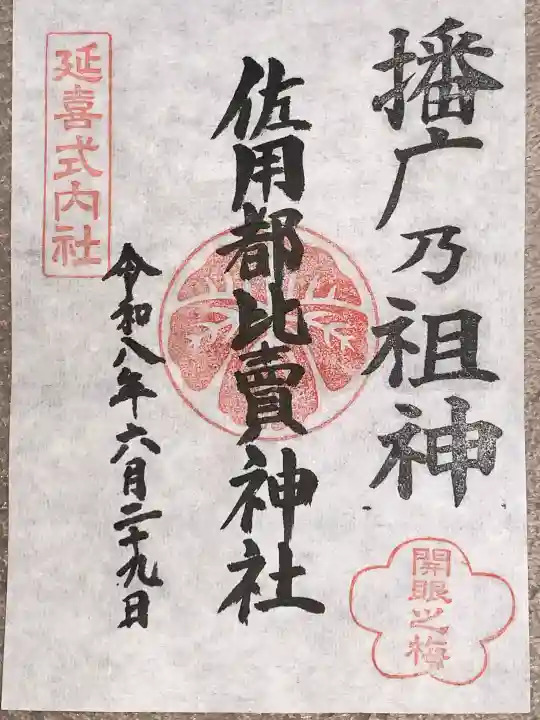 播广乃祖神
佐用都比賣神社
延喜式内社
令和八年六月二十九日
開眼之梅